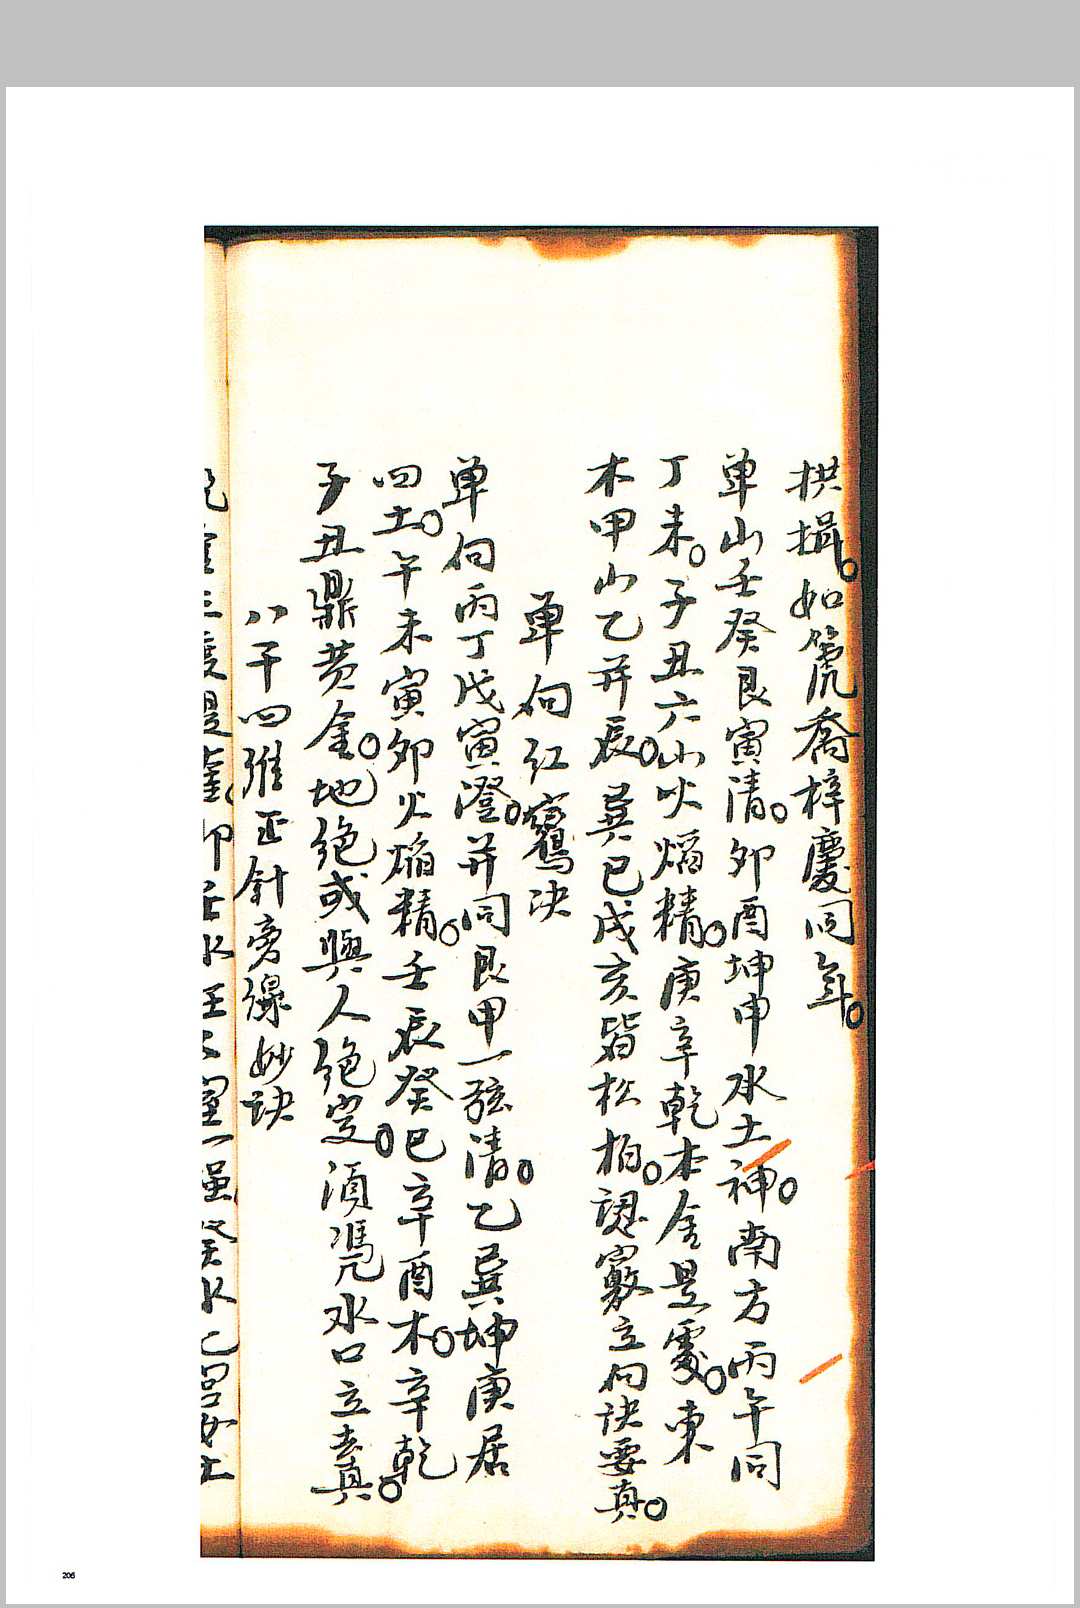 拱揖。如篪喬梓慶同年。
单山壬癸艮寅清。卯酉坤申水土神。南方丙午同
丁未。子丑六山火熖精。庚辛乾本金是處。東
木甲山乙并辰。巽巳戌亥皆松柏。認竅立向訣要真。
单向红鸞決
单向丙丁戌寅澄。并同艮甲一弦清。乙巽坤庚居
四土。午未寅卯火熖精。壬辰癸巳辛酉木。辛乾
子丑鼎黄金。地絶或與人絶定。須凴水口立真
八干四維正針旁縁妙訣
206